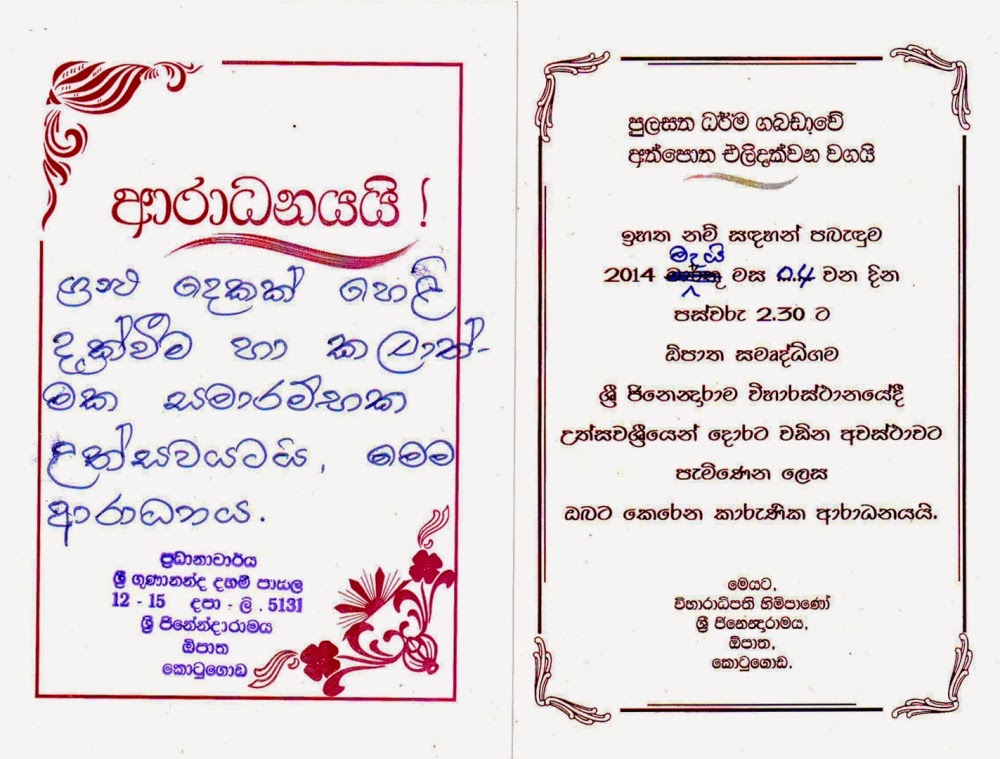 ආරාධනයයි !
ග්‍රන්ථ දෙකක් හෙළි
දැක්වීම හා කලාත්-
මක සමාරම්භක
උත්සවයටයි, මෙම
ආරාධනය.
ප්‍රධානාචාර්ය
ශ්‍රී ගුණානන්ද දහම් පාසල
12 - 15 දපා - ලි . 5131
ශ්‍රී ජිනේන්ද්‍රාරාමය
ඕපාත
කොටුගොඩ
පුලසත ධර්ම ගබඩාවේ
අත්පොත එළිදක්වන වගයි
ඉහත නම් සඳහන් පබැඳුම
මැයි
2014 මස 04 වන දින
පස්වරු 2.30 ට
ඕපාත සමෘද්ධිගම
ශ්‍රී ජිනෙන්ද්‍රාරාම විහාරස්ථානයේදී
උත්සවශ්‍රීයෙන් දොරට වඩින අවස්ථාවට
පැමිණෙන ලෙස
ඔබට කෙරෙන කාරුණික ආරාධනයයි.
මෙයට,
විහාරාධිපති හිමිපාණෝ
ශ්‍රී ජිනෙන්ද්‍රාරාමය,
ඕපාත,
කොටුගොඩ.